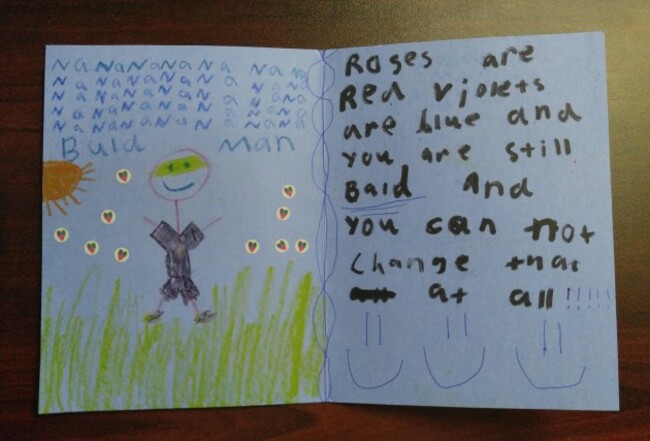 Na NaNaNaNa Na Na Na
Na NaNaNaNa Na NaNa
Na NaNaNaNa Na NaNa
Na NaNaNaNa Na NaNa
Na NaNaNaNa Na NaNa
Bald Man
Roses are
Red violets
are blue and
you are still
Bald And
you can not
Change that
at all!!!!!